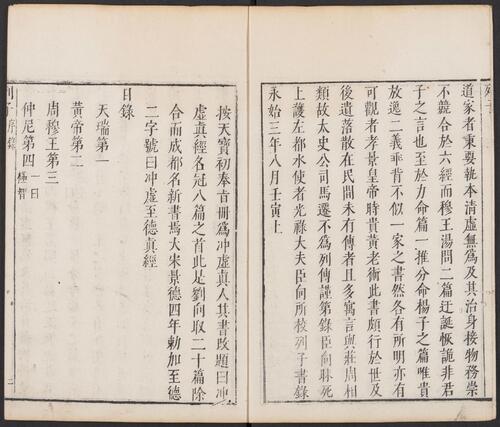 道家者秉要執本清虛無爲及其治身接物務崇
不競合於六經而穆王湯問二篇迂誕恢詭非君
子之言也至於力命篇一推分命楊子之篇唯貴
放逸二義乖背不似一家之書然各有所明亦有
可觀者孝景皇帝時貴黃老術此書頗行於世及
後遺落散在民間未有傳者且多寓言與莊周相
類故太史公司馬遷不爲列傳謹第錄臣向昧死
上護左都水使者光祿大夫臣向所校列子書錄
永始三年八月壬寅上
按天寶初奉旨冊爲冲虛真人其書改題曰冲
虛真經名冠八篇之首此是劉向取二十篇除
合而成都名新書焉大宋景德四年勅加至德
二字號曰冲虛至德真經
目錄
天瑞第一
黃帝第二
周穆王第三
仲尼第四 一曰極智